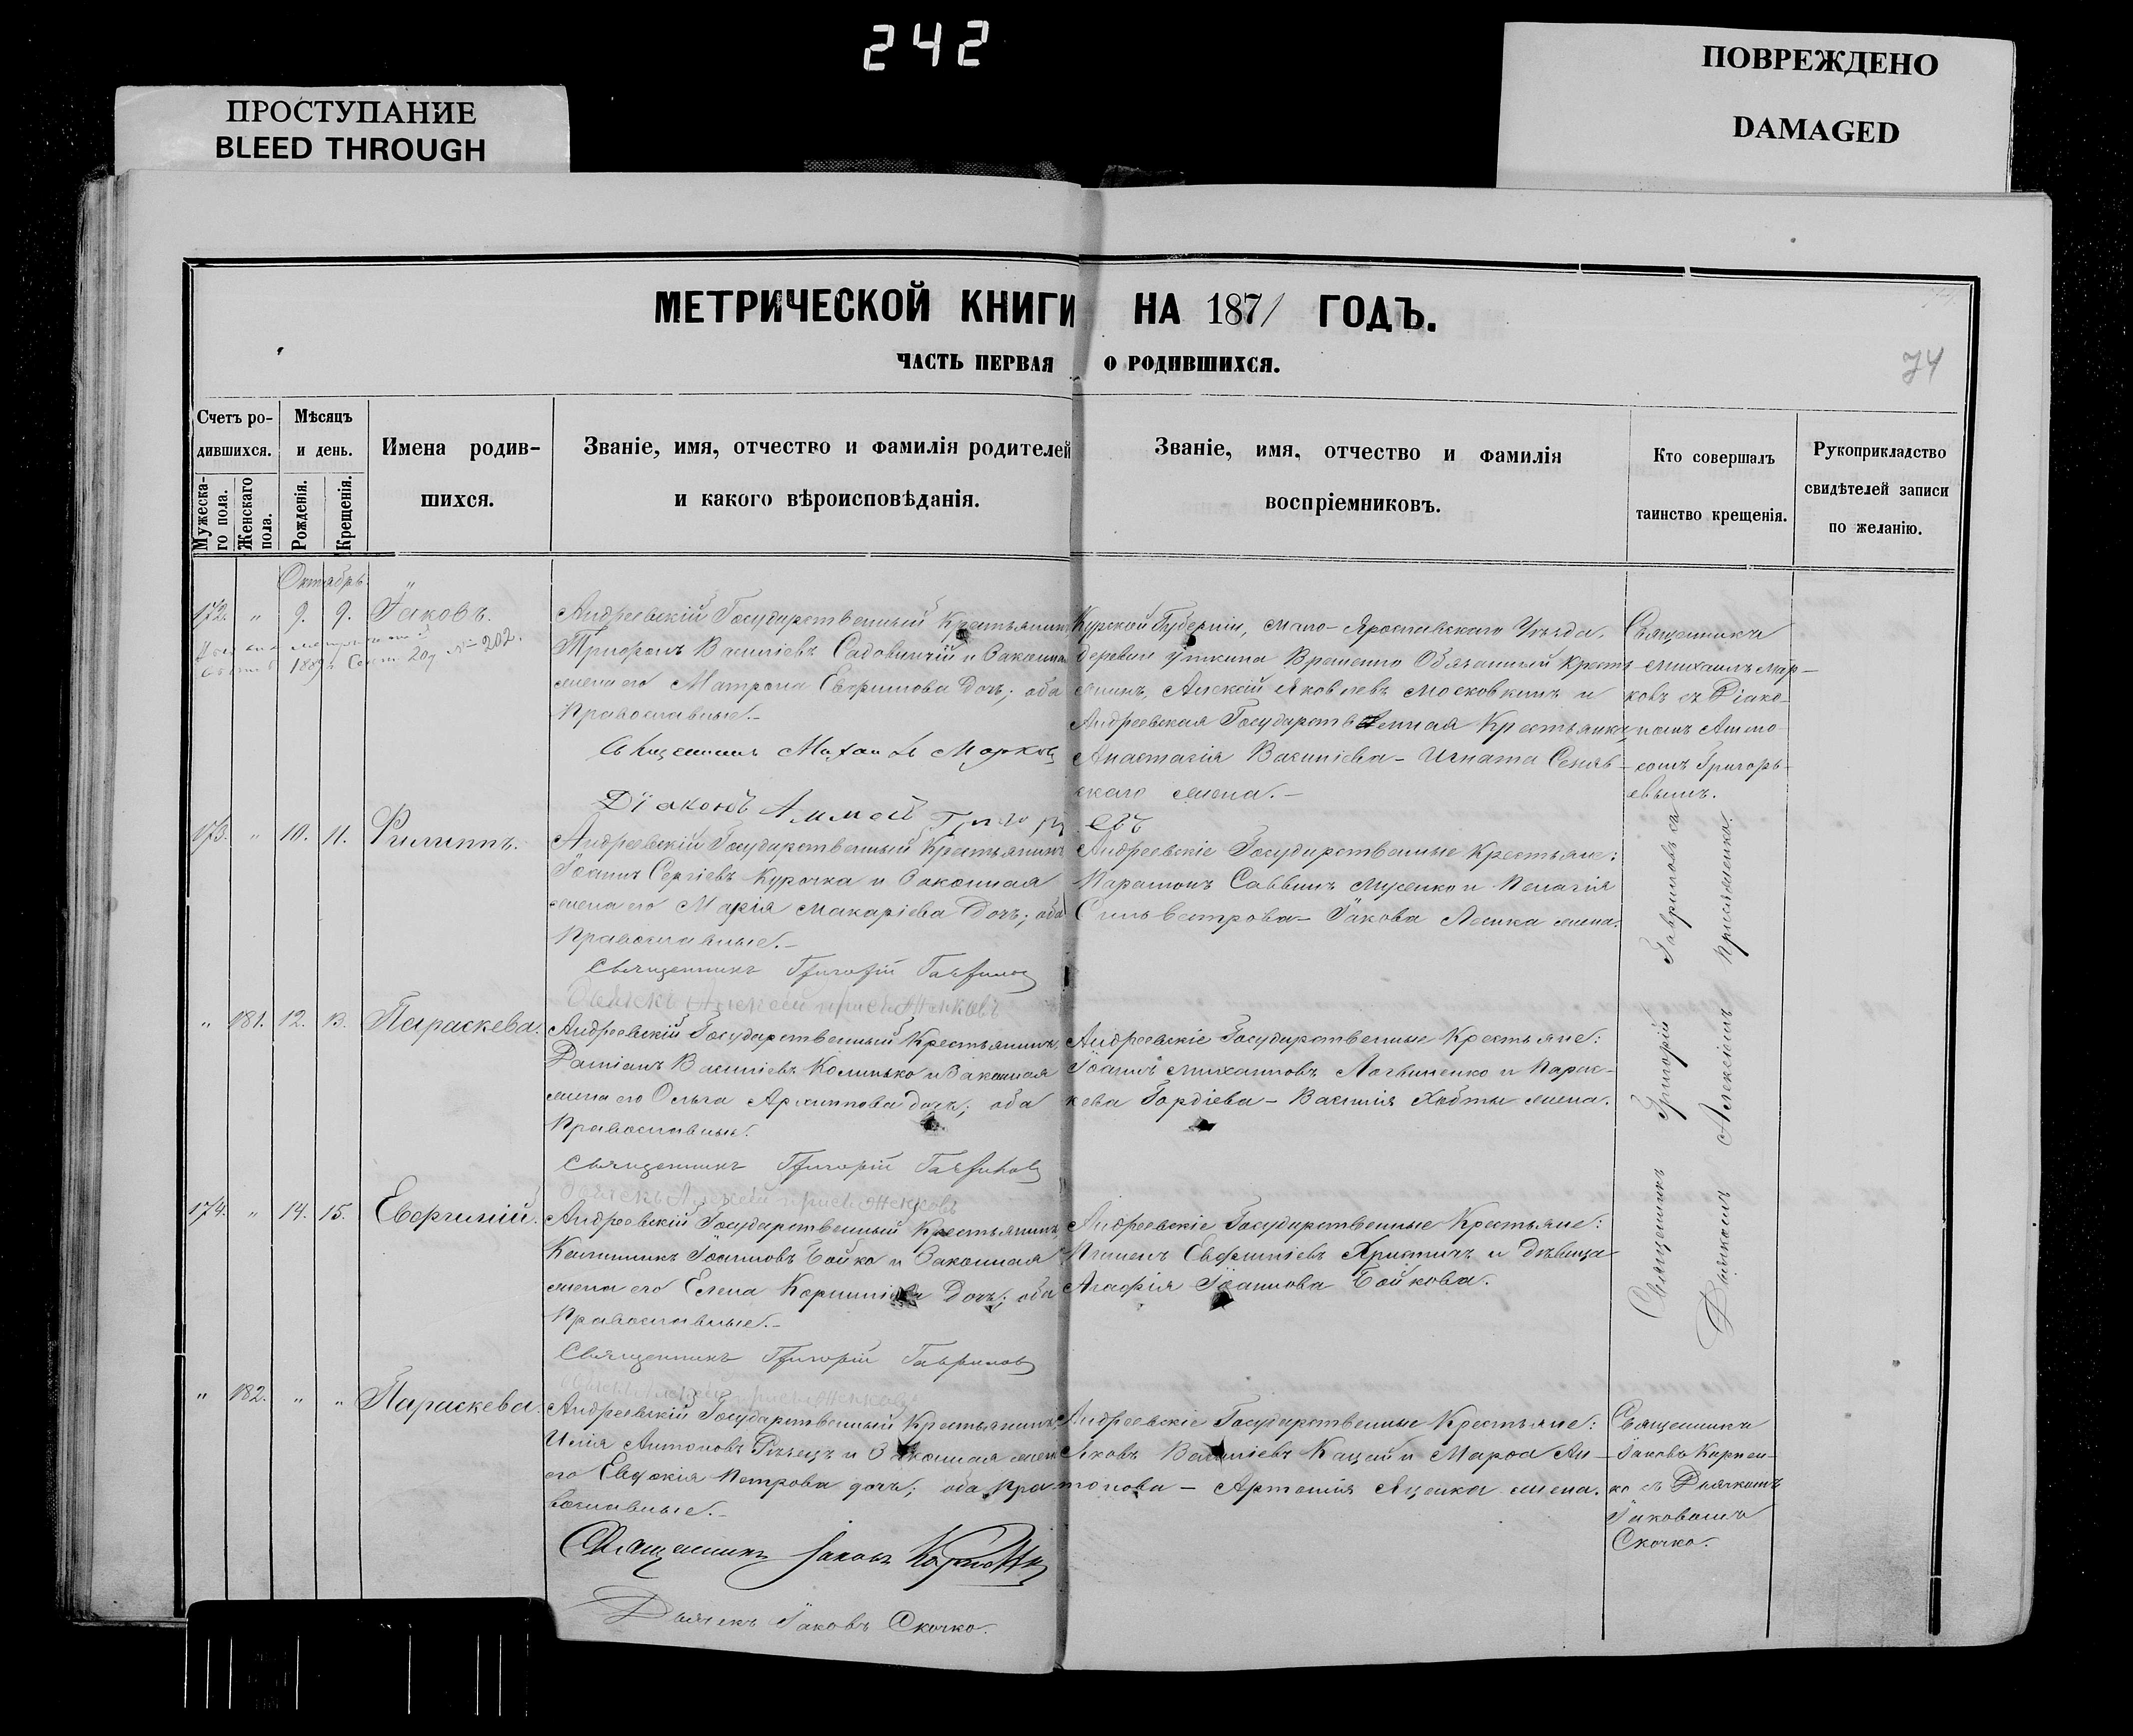 242
ПРОСТУПАНИЕ
BLEED THROUGH
ПОВРЕЖДЕНО
DAMAGED
МЕТРИЧЕСКОЙ КНИГИ НА 1871 ГОДЪ.
ЧАСТЬ ПЕРВАЯ О РОДИВШИХСЯ.
74
Счетъ ро-
дившихся.
Мужеска-
го пола.
Женскаго
пола.
Мѣсяцъ
и день.
Рожденія.
Крещенія.
Имена родив-
шихся.
Званіе, имя, отчество и фамилія родителей
и какого вѣроисповѣданія.
Званіе, имя, отчество и фамилія
воспріемниковъ.
Кто совершалъ
таинство крещенія.
Рукоприкладство
свидѣтелей записи
по желанію.
Октябрь
172. " 9. 9. Іаковъ.
1889 Сент. 20 № 202.
Андреевскій Государственный Крестьянинъ
Трифонъ Василіевъ Садовничій и Законная
жена его Матрона Евфимова дочь; оба
Православные.-
Священникъ Михаилъ Марковъ
Діаконъ
Курской Губерніи, Мало-Ярославскаго Уѣзда,
деревни Временно Обязанный Кресть-
янинъ, Алексій Яковлевъ Московкинъ и
Андреевская Государственная Крестьянка
Анастасія Василіева - Игната
скаго жена.-
Священникъ
Михаилъ Мар-
ковъ съ Діако-
номъ
Григорь-
евымъ.
173. " 10. 11. Филиппъ.
Андреевскій Государственный Крестьянинъ
Іоаннъ Сергіевъ Курочка и Законная
жена его Марія Макаріева дочь; оба
Православные.-
Священникъ Григорій Гавриловъ
Андреевскіе Государственные Крестьяне:
Парамонъ Саввинъ и Пелагія
Сильвестрова - Іакова жена.
" 181. 12. 13. Параскева.
Андреевскій Государственный Крестьянинъ
Даміанъ Василіевъ и Законная
жена его Ольга Архиппова дочь; оба
Православные.
Священникъ Григорій Гавриловъ
Андреевскіе Государственные Крестьяне:
Іоаннъ Михаиловъ Логвиненко и Парас-
кева Гордіева - Василія жена.
174. " 14. 15. Евфимій.
Андреевскій Государственный Крестьянинъ
Каллиникъ Іоанновъ Бойко и Законная
жена его Елена Корниліева дочь; оба
Православные.-
Священникъ Григорій Гавриловъ
Андреевскіе Государственные Крестьяне:
Евфиміевъ и Дѣвица
Агафія Іоаннова Бойкова.
Священникъ Григорій Гавриловъ съ
Дьячкомъ Алексіемъ
" 182. " " Параскева.
Андреевскій Государственный Крестьянинъ
Илія Антоновъ и Законная жена
его Евдокія Петрова дочь; оба Пра-
вославные.-
Священникъ Іаковъ Карпенко
Дьячекъ Іаковъ Скочко.
Андреевскіе Государственные Крестьяне:
Яковъ Василіевъ и Марфа Ан-
тонова - Артемія Яценка жена.
Священникъ
Іаковъ Карпен-
ко съ Дьячкомъ
Іаковомъ
Скочко.